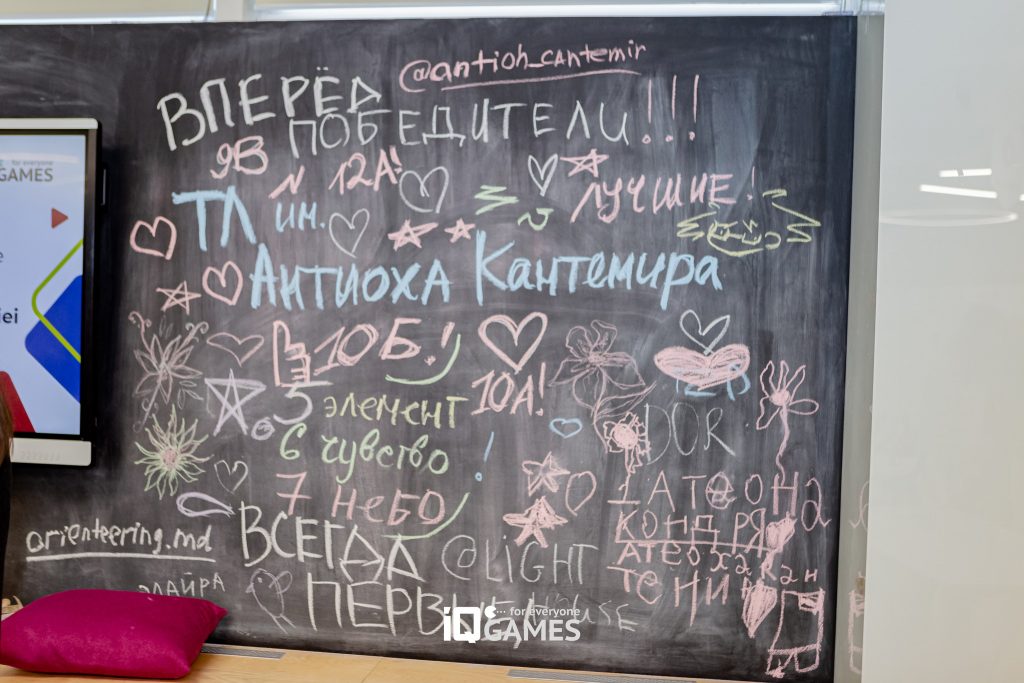 @antioh_cantemir
ВПЕРЁД
ПОБЕДИТЕЛИ!!!
9В
N 12А!
ЛУЧШИЕ!
ТЛ им.
Антиоха Кантемира
10Б.!
10А!
5 элемент
6 чувство!
7 небо
DOR
orienteering.md
ВСЕГДА
ПЕРВЫЕ
@LiGHT
ЭЛАЙРА
for everyone
GAMES
iei
iQ for everyone
GAMES